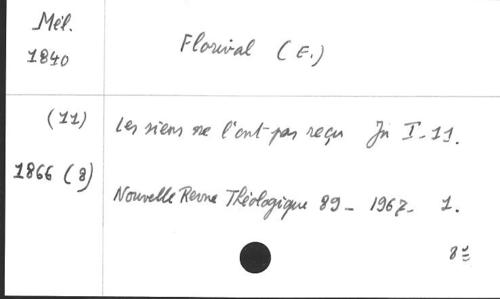 Mél.
1840
Florival (E.)
(11)
Les siens ne l'ont pas reçu Jn I-11.
1866 (8)
Nouvelle Revue Théologique 89 - 1967 - 1.
8º